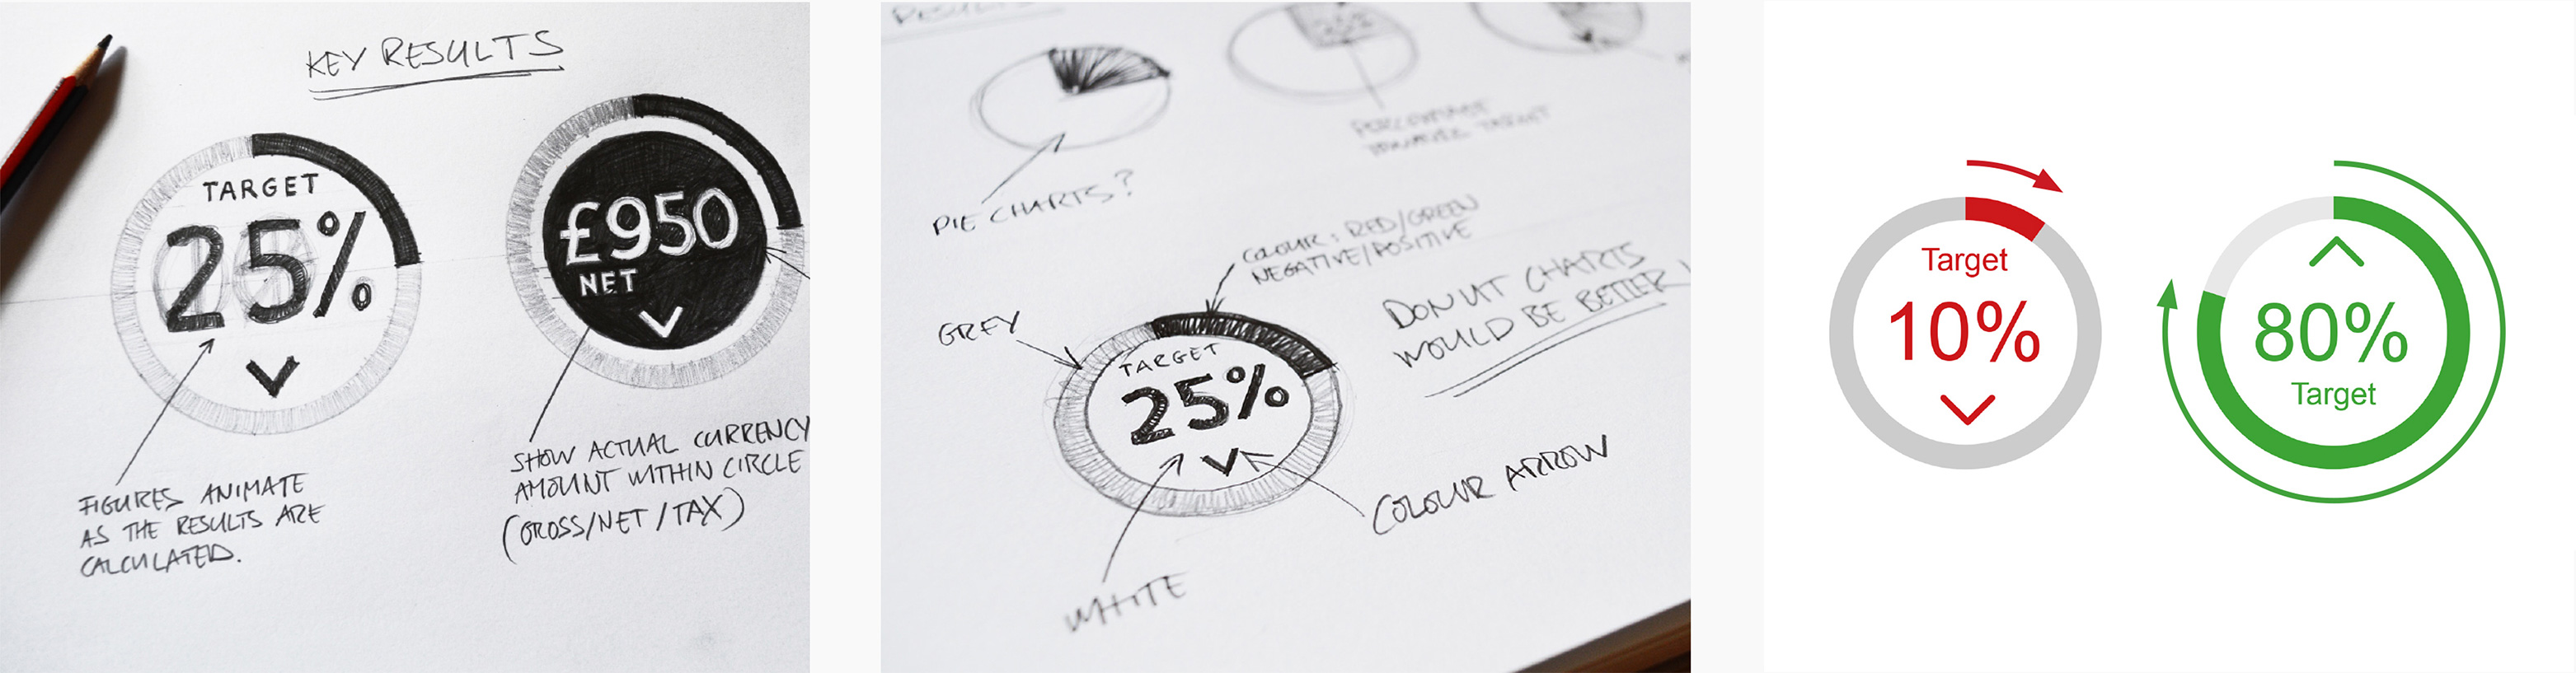 KEY RESULTS
TARGET
25%
£950
NET
FIGURES ANIMATE
AS THE RESULTS ARE
CALCULATED.
SHOW ACTUAL CURRENCY
AMOUNT WITHIN CIRCLE
(GROSS/NET/TAX)
RESULTS
PIE CHARTS?
PERCENTAGE
TOWARDS TARGET
COLOUR: RED/GREEN
NEGATIVE/POSITIVE
DONUT CHARTS
WOULD BE BETTER!
GREY
TARGET
25%
COLOUR ARROW
WHITE
Target
10%
80%
Target